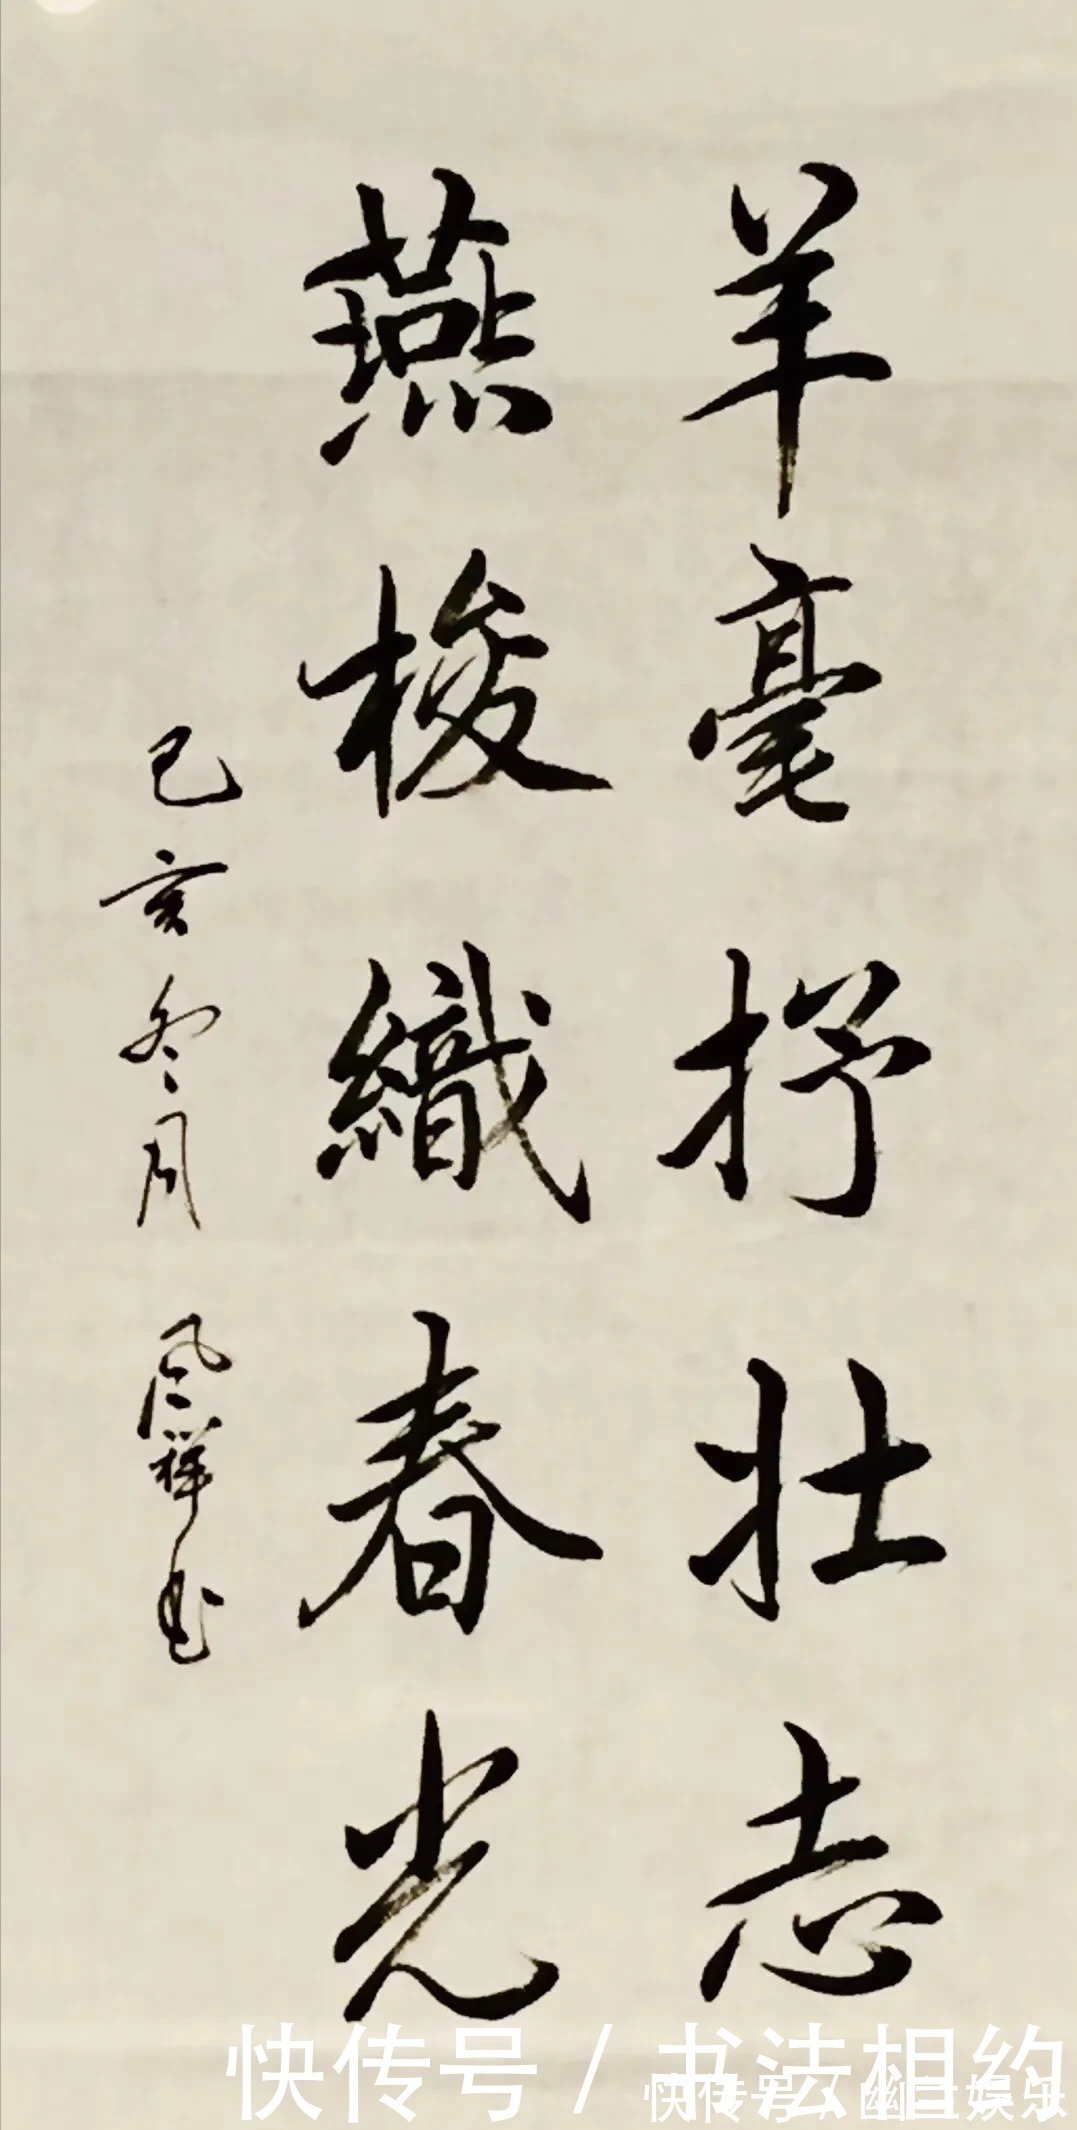 羊毫抒壮志
燕梭織春光
己亥冬月 风祥书
快传号 / 书法相约
快传号 / 幽兰娱乐